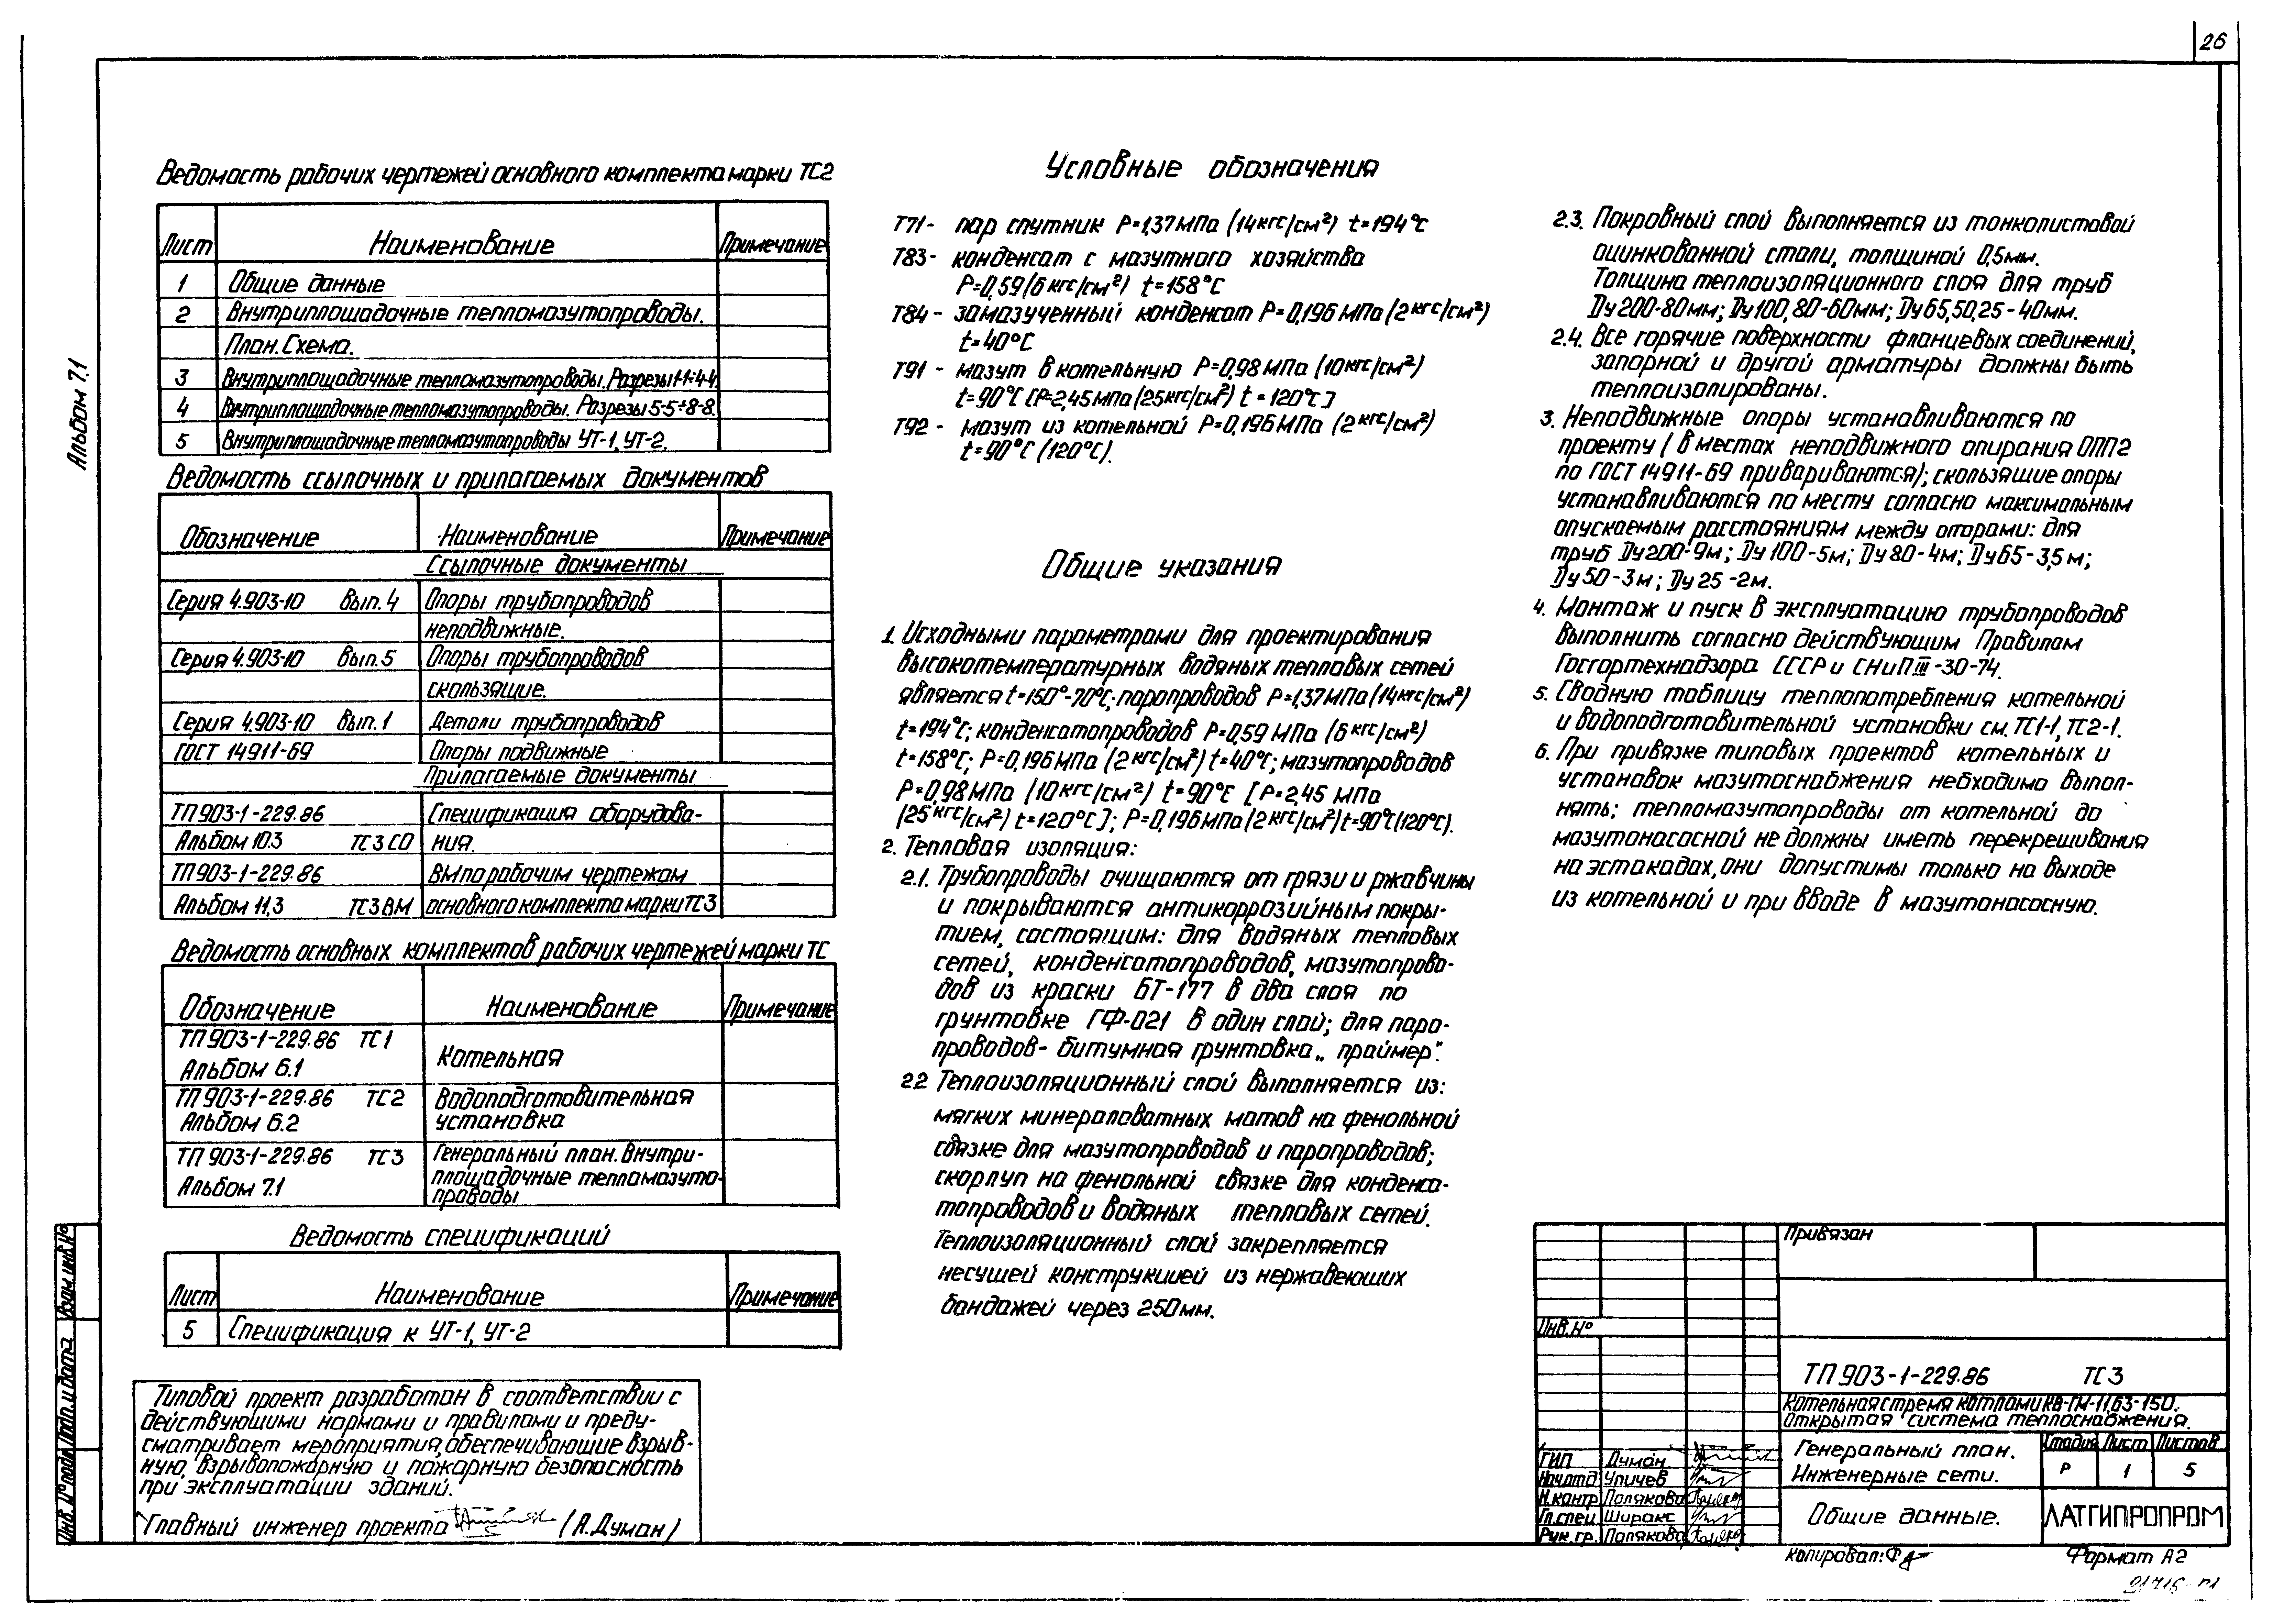 26
Альбом 7.1
Ведомость рабочих чертежей основного комплекта марки ТС2
Лист Наименование Примечание
1 Общие данные
2 Внутриплощадочные тепломазутопроводы.
План. Схема.
3 Внутриплощадочные тепломазутопроводы. Разрезы 1-1÷4-4.
4 Внутриплощадочные тепломазутопроводы. Разрезы 5-5÷8-8.
5 Внутриплощадочные тепломазутопроводы УТ-1, УТ-2.
Ведомость ссылочных и прилагаемых документов
Обозначение Наименование Примечание
Ссылочные документы
Серия 4.903-10 Вып. 4 Опоры трубопроводов
неподвижные.
Серия 4.903-10 Вып. 5 Опоры трубопроводов
скользящие.
Серия 4.903-10 Вып. 1 Детали трубопроводов
ГОСТ 14911-69 Опоры подвижные
Прилагаемые документы
ТП 903-1-229.86 Спецификация оборудова-
Альбом 10.3 ТС3 СО ния.
ТП 903-1-229.86 ВМ по рабочим чертежам
Альбом 11.3 ТС3 ВМ основного комплекта марки ТС3
Ведомость основных комплектов рабочих чертежей марки ТС
Обозначение Наименование Примечание
ТП 903-1-229.86 ТС1
Альбом 6.1 Котельная
ТП 903-1-229.86 ТС2 Водоподготовительная
Альбом 6.2 установка
ТП 903-1-229.86 ТС3 Генеральный план. Внутри-
площадочные тепломазуто-
Альбом 7.1 проводы
Ведомость спецификаций
Лист Наименование Примечание
5 Спецификация к УТ-1, УТ-2
Типовой проект разработан в соответствии с
действующими нормами и правилами и преду-
сматривает мероприятия, обеспечивающие взрыв-
ную, взрывопожарную и пожарную безопасность
при эксплуатации зданий.
Главный инженер проекта (А.Думан)
Условные обозначения
Т71- пар спутник Р=1,37МПа (14кгс/см²) t=194°С
Т83- конденсат с мазутного хозяйства
Р=0,59(6кгс/см²) t=158°С
Т84- замазученный конденсат Р=0,196МПа (2кгс/см²)
t=40°С
Т91- мазут в котельную Р=0,98МПа (10кгс/см²)
t=90°С [Р=2,45МПа (25кгс/см²) t=120°С]
Т92- мазут из котельной Р=0,196МПа (2кгс/см²)
t=90°С (120°С).
Общие указания
1. Исходными параметрами для проектирования
высокотемпературных водяных тепловых сетей
является t=150°-70°С; паропроводов Р=1,37МПа (14кгс/см²)
t=194°С; конденсатопроводов Р=0,59 МПа (6кгс/см²)
t=158°С; Р=0,196МПа (2кгс/см²) t=40°С; мазутопроводов
Р=0,98МПа (10кгс/см²) t=90°С [Р=2,45 МПа
(25кгс/см²) t=120°С]; Р=0,196МПа (2кгс/см²) t=90°С (120°С).
2. Тепловая изоляция:
2.1. Трубопроводы очищаются от грязи и ржавчины
и покрываются антикоррозийным покры-
тием, состоящим: для водяных тепловых
сетей, конденсатопроводов, мазутопрово-
дов из краски БТ-177 в два слоя по
грунтовке ГФ-021 в один слой; для паро-
проводов- битумная грунтовка „праймер".
2.2 Теплоизоляционный слой выполняется из:
мягких минераловатных матов на фенольной
связке для мазутопроводов и паропроводов;
скорлуп на фенольной связке для конденса-
топроводов и водяных тепловых сетей.
Теплоизоляционный слой закрепляется
несущей конструкцией из нержавеющих
бандажей через 250мм.
2.3. Покровный слой выполняется из тонколистовой
оцинкованной стали, толщиной 0,5мм.
Толщина теплоизоляционного слоя для труб
Ду200-80мм; Ду100,80-60мм; Ду65,50,25-40мм.
2.4. Все горячие поверхности фланцевых соединений,
запорной и другой арматуры должны быть
теплоизолированы.
3. Неподвижные опоры устанавливаются по
проекту (в местах неподвижного опирания ОПП2
по ГОСТ 14911-69 привариваются); скользящие опоры
устанавливаются по месту согласно максимальным
опускаемым расстояниям между опорами: для
труб Ду200-9м; Ду100-5м; Ду80-4м; Ду65-3,5м;
Ду50-3м; Ду25-2м.
4. Монтаж и пуск в эксплуатацию трубопроводов
выполнить согласно действующим Правилам
Госгортехнадзора СССР и СНиП III-30-74.
5. Сводную таблицу теплопотребления котельной
и водоподготовительной установки см. ТС1-1, ТС2-1.
6. При привязке типовых проектов котельных и
установок мазутоснабжения небходимо выпол-
нять; тепломазутопроводы от котельной до
мазутонасосной не должны иметь перекрещивания
на эстакадах, они допустимы только на выходе
из котельной и при вводе в мазутонасосную.
Привязан
Инв. №
ТП 903-1-229.86 ТС3
Котельная с тремя котлами КВ-ГМ-11,63-150.
Открытая система теплоснабжения.
Генеральный план.
Инженерные сети.
Стадия Лист Листов
Р 1 5
ГИП Думан
Нач.отд Упичев
Н.контр. Полякова
Гл.спец. Ширакс
Рук.гр. Полякова
Общие данные.
ЛАТГИПРОПРОМ
Копировал:
Формат А2
Взам. инв. №
Подп. и дата
Инв. № подл.